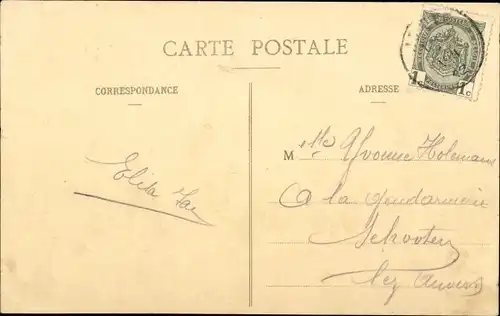 CARTE POSTALE
CORRESPONDANCE
ADRESSE
Mlle Yvonne Holemans
A la Gendarmerie
Schooten
lez Anvers
Elisa
1c 1c